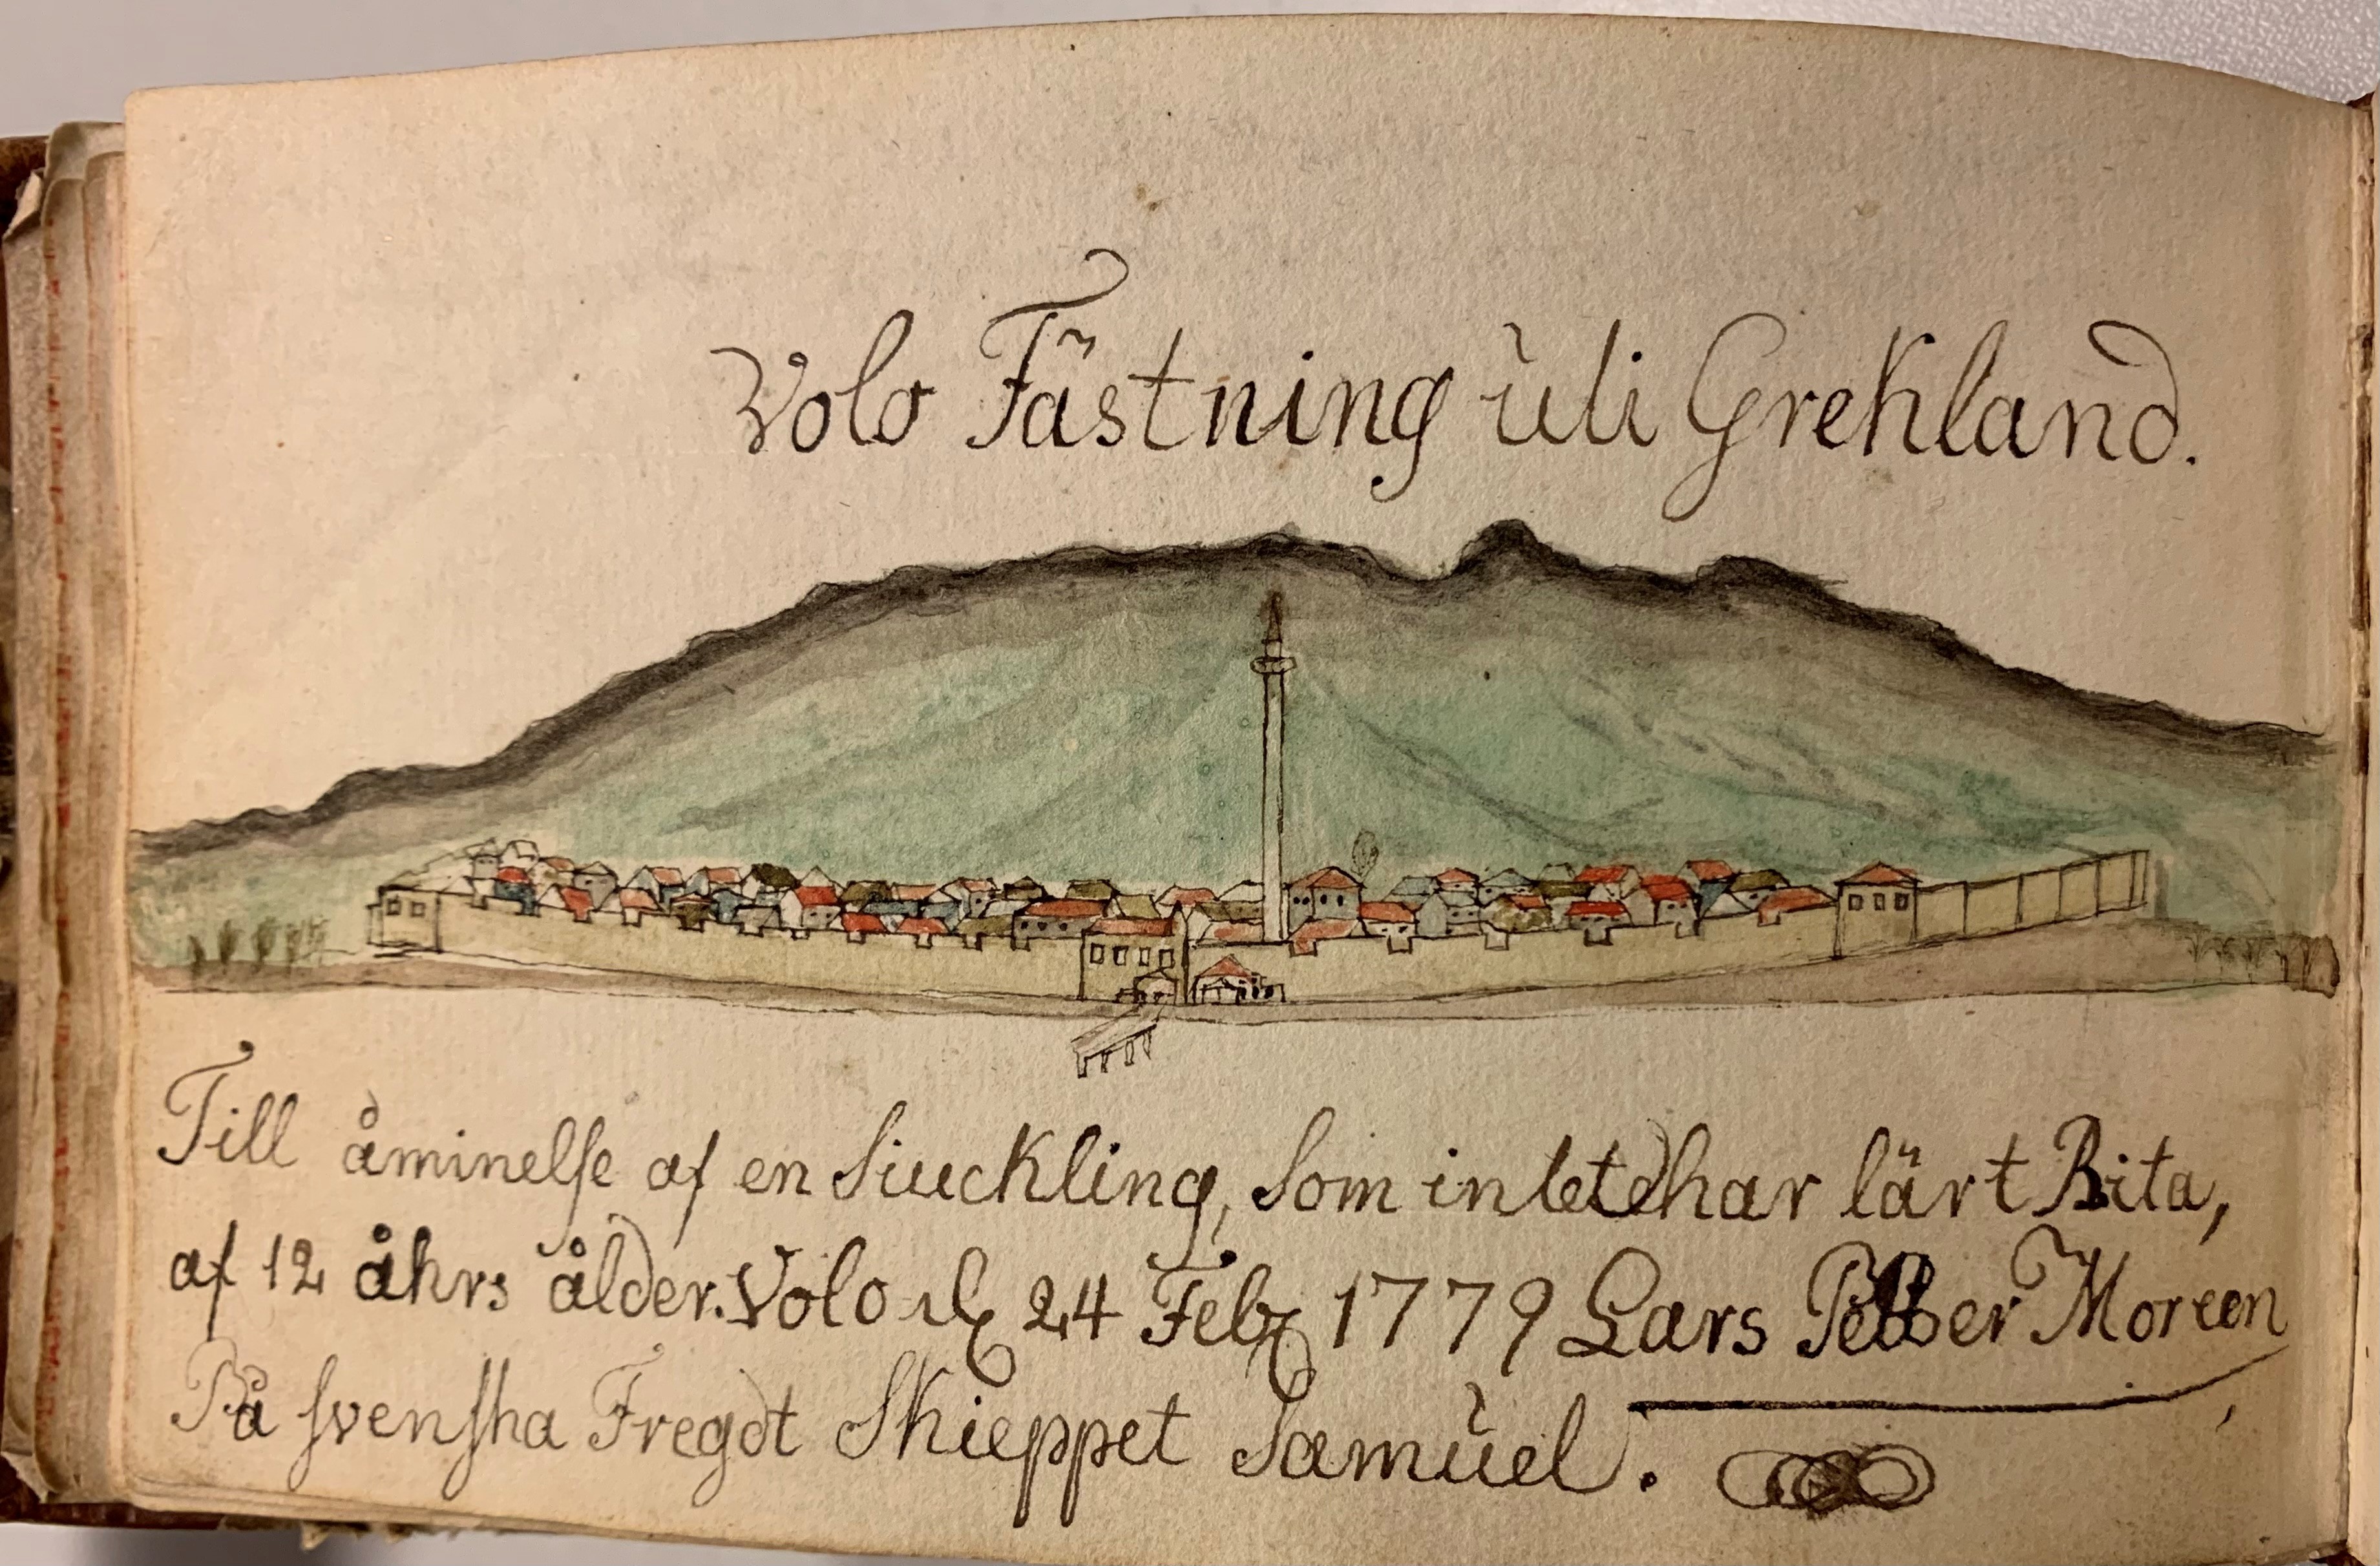 Volo Fästning uti Grekland.
Till åminelse af en Siuckling, Som intet har lärt Rita,
af 12 åhrs ålder. Volo d. 24 Febr 1779 Lars Petter Moreen
På svenska Fregdt Skieppet Samuel.